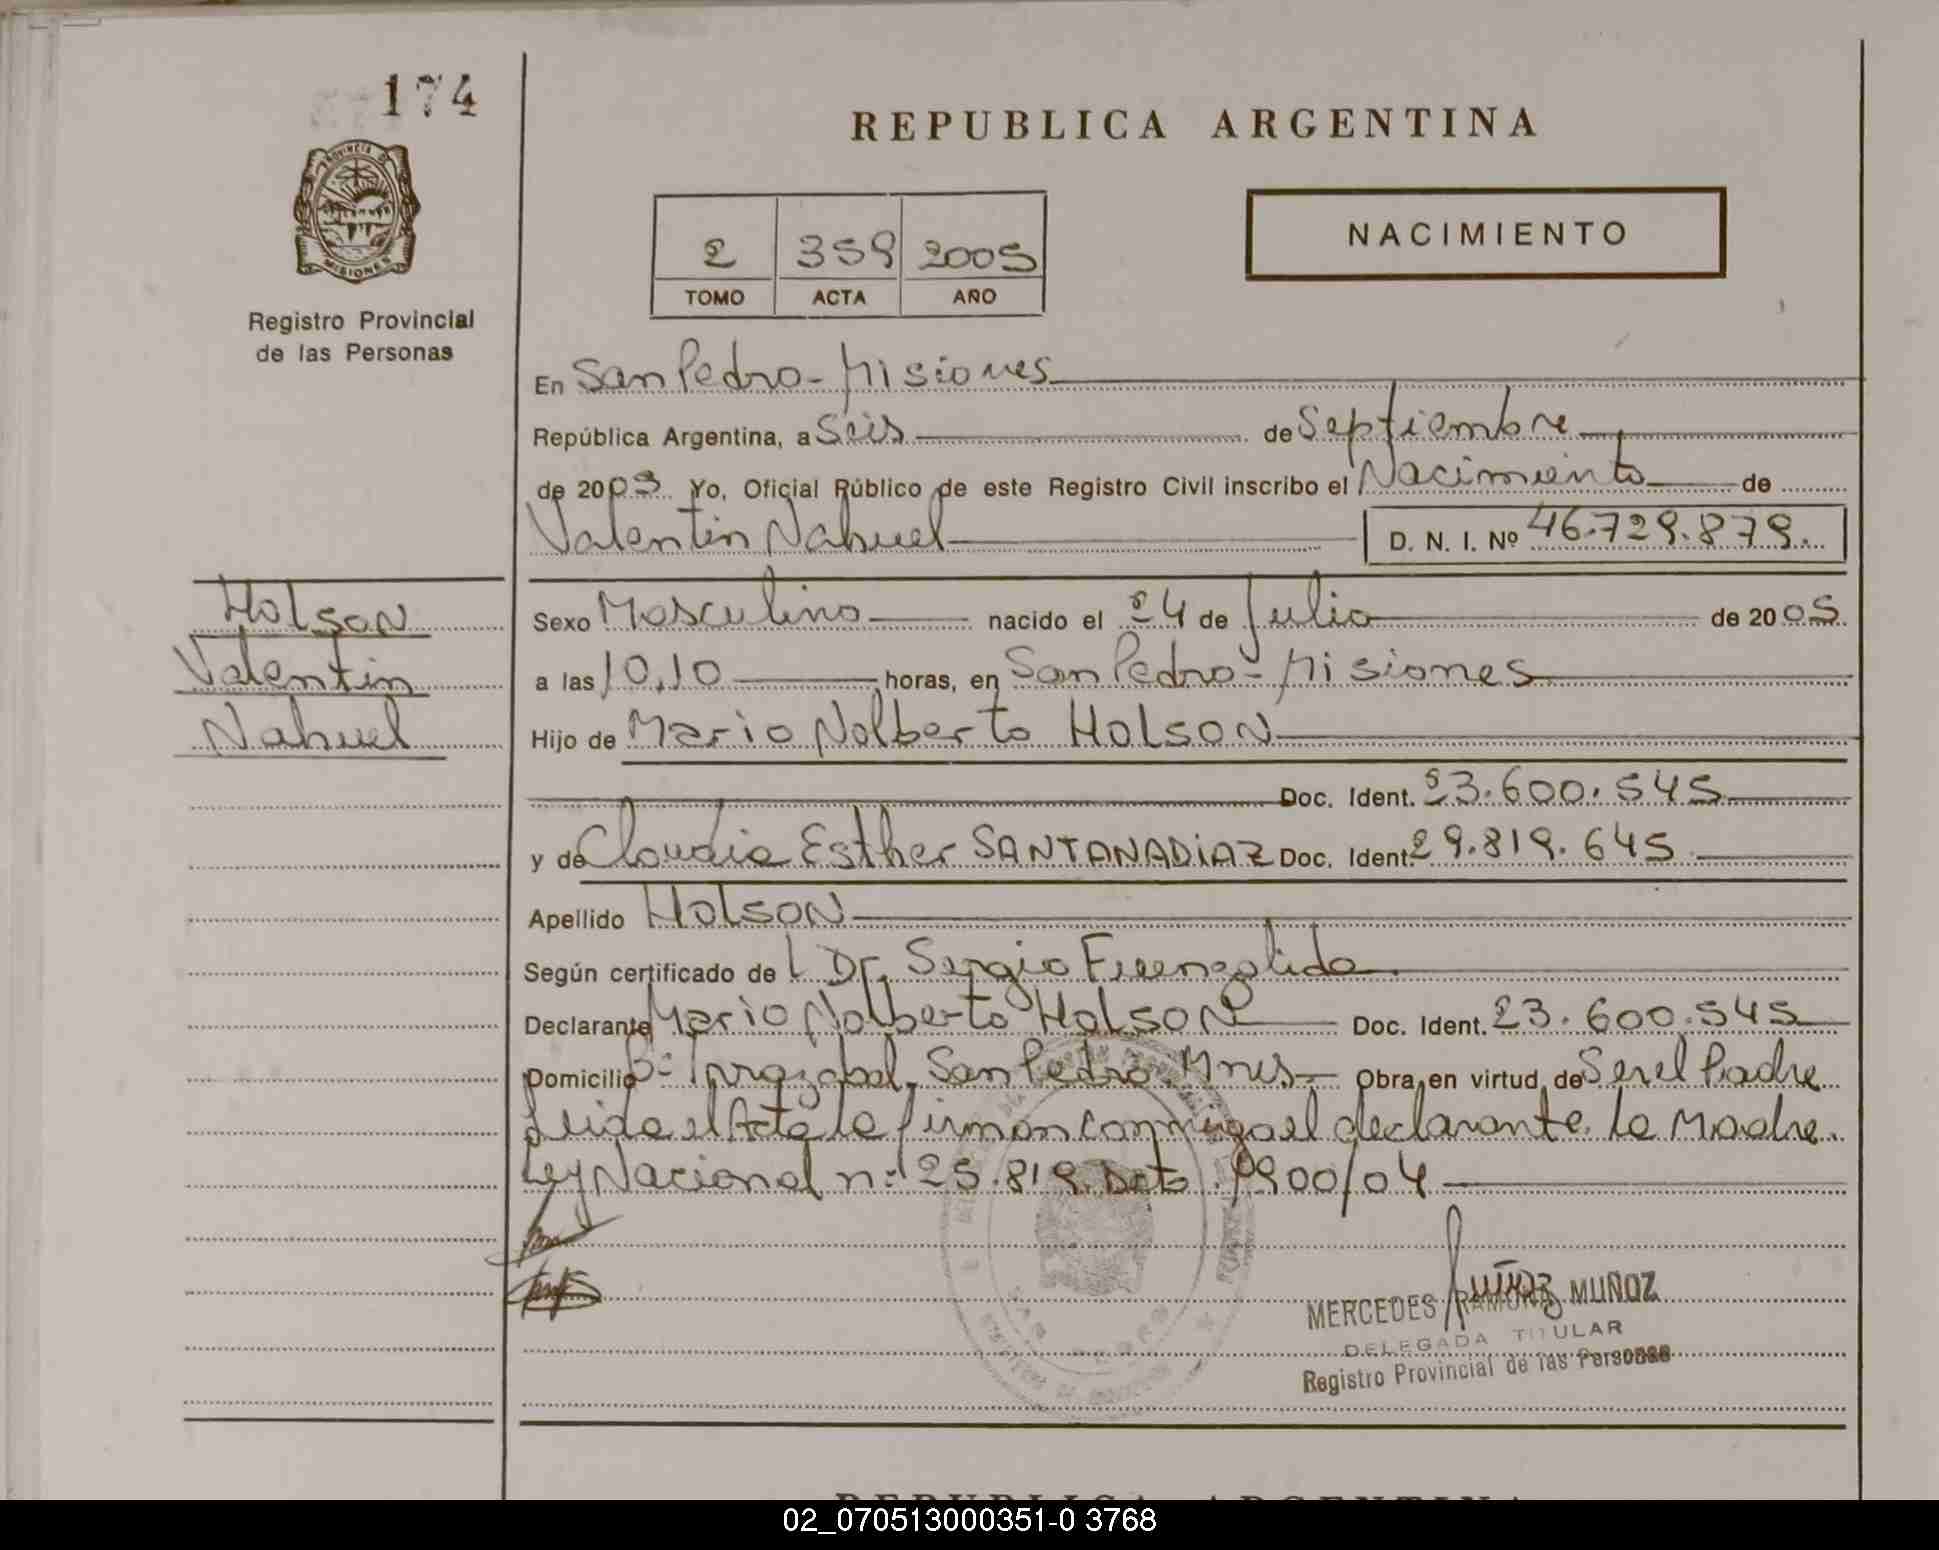 174
REPUBLICA ARGENTINA
PROVINCIA DE
MISIONES
NACIMIENTO
2 359 2005
TOMO ACTA AÑO
Registro Provincial
de las Personas
En San Pedro - Misiones
República Argentina, a Seis de Septiembre
de 2005 Yo, Oficial Público de este Registro Civil inscribo el Nacimiento de
Valentin Nahuel D. N. I. Nº 46.729.879.
Holson
Valentin
Nahuel
Sexo Masculino nacido el 24 de Julio de 2005
a las 10,10 horas, en San Pedro - Misiones
Hijo de Mario Nolberto HOLSON
Doc. Ident. 23.600.545
y de Claudia Esther SANTANADIAZ Doc. Ident 29.819.645
Apellido HOLSON
Según certificado de Dr. Sergio Fuenzalida
Declarante Mario Nolberto HOLSON Doc. Ident. 23.600.545
Domicilio Bº Irrazabal, San Pedro Mnes. Obra en virtud de Ser el Padre
Leida el Acta la firman conmigo el declarante. La Madre.
Ley Nacional nº 25.819. Dcto. 1900/04
Muñoz
MERCEDES RAMONA MUÑOZ
DELEGADA TITULAR
Registro Provincial de las Personas
REPUBLICA ARGENTINA
02_070513000351-0 3768